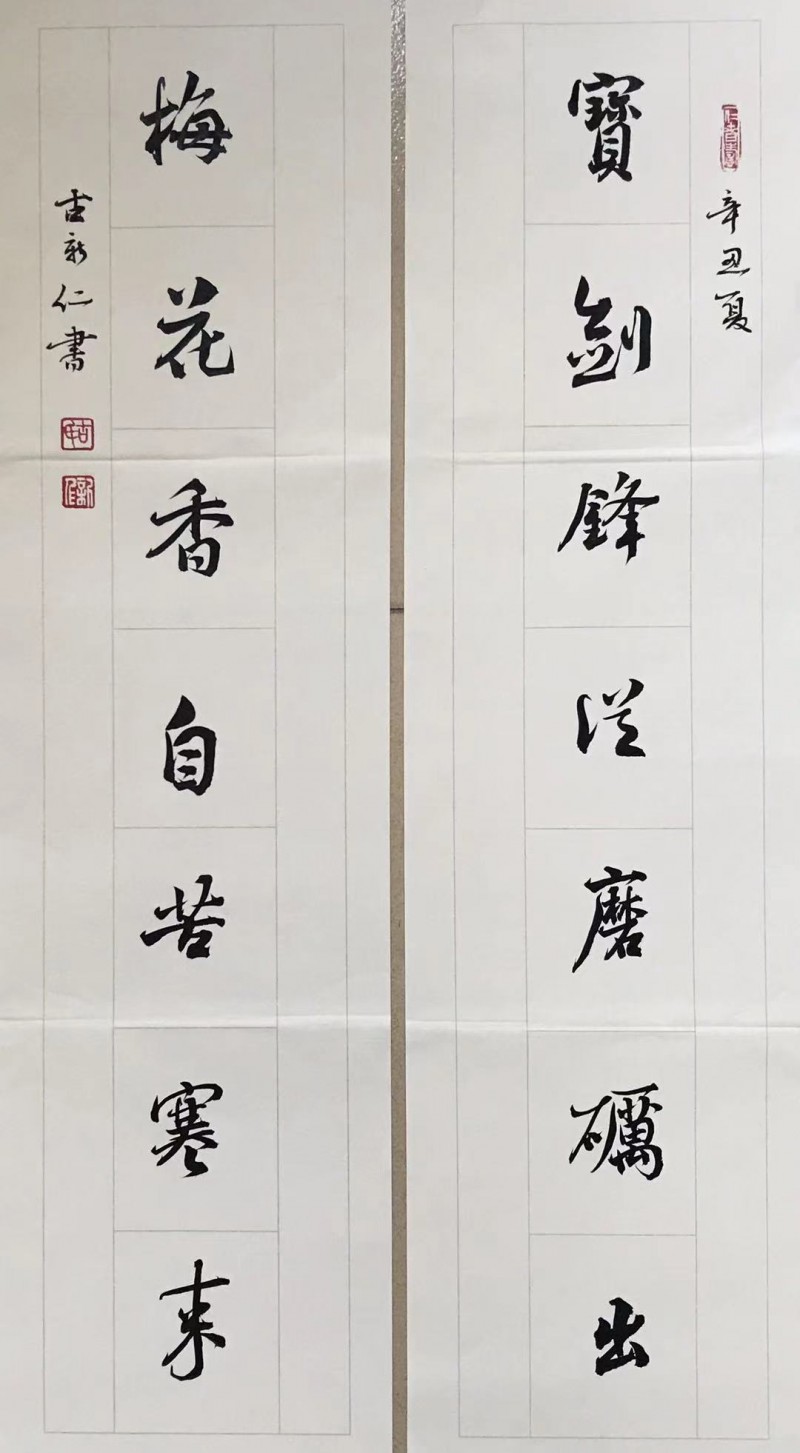 辛丑夏
寶劍鋒從磨礪出
梅花香自苦寒来
古新仁書